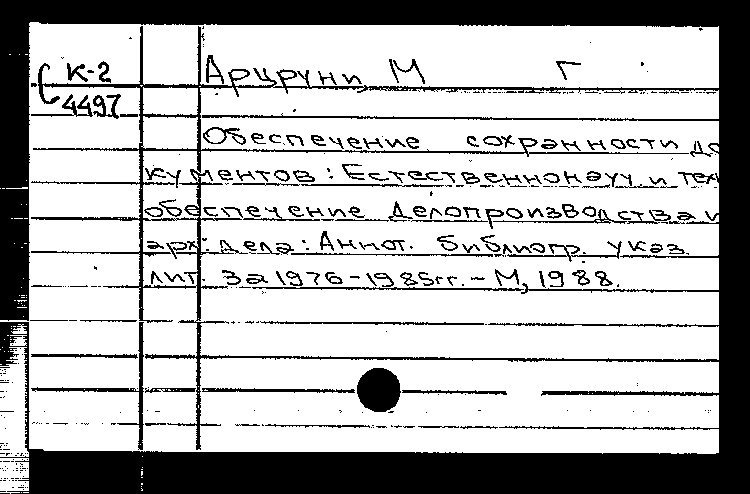 К-2
4497
Арцруни, М Г
Обеспечение сохранности до
кументов: Естественнонауч. и тех
обеспечение делопроизводства и
арх. дела: Аннот. библиогр. указ.
лит. За 1976-1985гг. - М, 1988.